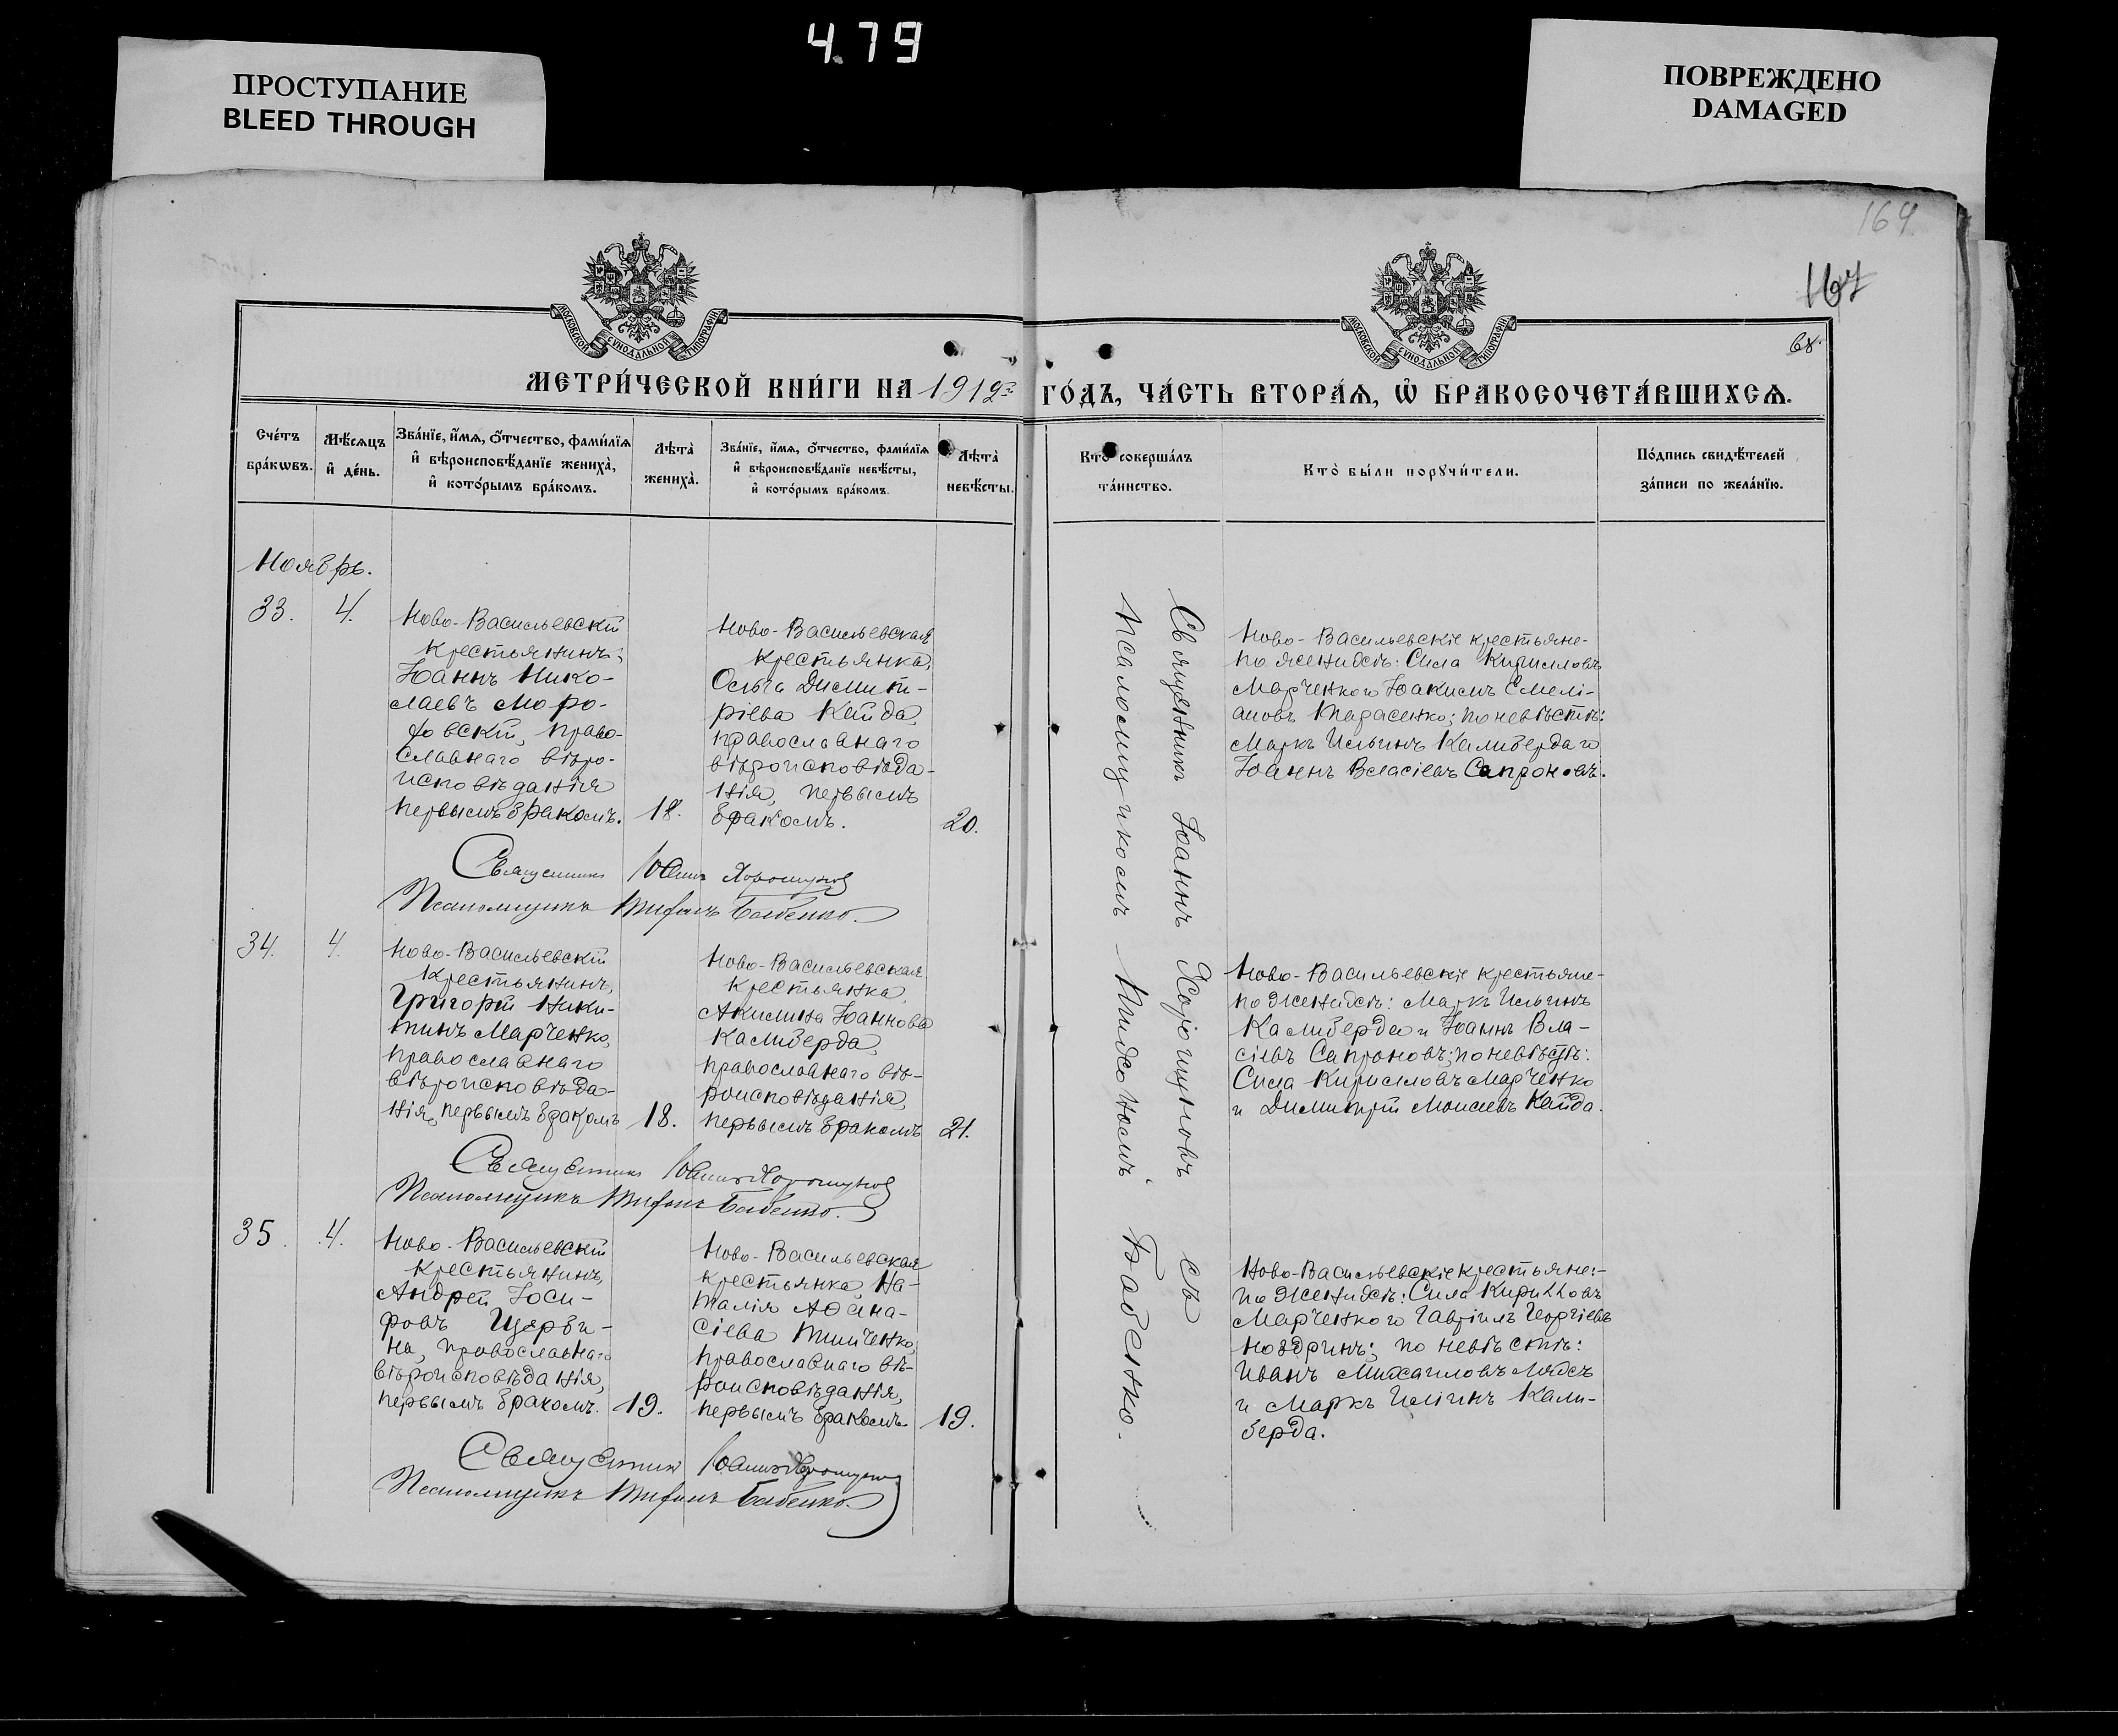 4.79
ПРОСТУПАНИЕ
BLEED THROUGH
ПОВРЕЖДЕНО
DAMAGED
164
167
68
МОСКОВСКОЙ СѴНОДАЛЬНОЙ ТИПОГРАФІИ
МОСКОВСКОЙ СѴНОДАЛЬНОЙ ТИПОГРАФІИ
МЕТРИ́ЧЕСКОЙ КНИ́ГИ НА 1912й ГО́ДЪ, ЧА́СТЬ ВТОРА́Ѧ, Ѡ҆ БРАКОСОЧЕТА́ВШИХСѦ.
Сче́тъ
бра́кѡвъ.
Мѣ́сѧцъ
и҆ де́нь.
Зва́нїе, и҆́мѧ, ѻ҆́тчество, фами́лїѧ
и҆ вѣроисповѣ́данїе жениха̀,
и҆ кото́рымъ бра́комъ.
Лѣта̀
жениха̀.
Зва́нїе, и҆́мѧ, ѻ҆́тчество, фами́лїѧ
и҆ вѣроисповѣ́данїе невѣ́сты,
и҆ кото́рымъ бра́комъ.
Лѣта̀
невѣ́сты.
Кто̀ соверша́лъ
та́инство.
Кто̀ бы́ли порꙋчи́тели.
По́дпись свидѣ́телей
за́писи по жела́нїю.
Ноябрь.
33.
4.
Ново-Васильевскій
крестьянинъ,
Іоаннъ Нико-
лаевъ Моро-
ховскій, право-
славнаго вѣро-
исповѣданія
первымъ бракомъ.
18.
Ново-Васильевская
крестьянка,
Ольга Димит-
ріева Кайда,
православнаго
вѣроисповѣда-
нія, первымъ
бракомъ.
20.
Священникъ Іоаннъ Хорошуновъ съ
псаломщикомъ Тихономъ Бабенко.
Ново-Васильевскіе крестьяне-
по женихѣ: Сила Кирилловъ
Марченко и Іоакимъ Емелі-
ановъ Тарасенко; по невѣстѣ:
Маркъ Ильинъ Калиберда и
Іоаннъ Власіевъ Сапроновъ.
Священникъ Іоаннъ Хорошуновъ
Псаломщикъ Тихонъ Бабенко.
34.
4.
Ново-Васильевскій
крестьянинъ,
Григорій Ники-
тинъ Марченко,
православнаго
вѣроисповѣда-
нія, первымъ бракомъ
18.
Ново-Васильевская
крестьянка,
Акилина Іоаннова
Калиберда,
православнаго вѣ-
роисповѣданія,
первымъ бракомъ
21.
Ново-Васильевскіе крестьяне-
по женихѣ: Маркъ Ильинъ
Калиберда и Іоаннъ Вла-
сіевъ Сапроновъ; по невѣстѣ:
Сила Кирилловъ Марченко
и Димитрій Моисеевъ Кайда.
Священникъ Іоаннъ Хорошуновъ
Псаломщикъ Тихонъ Бабенко.
35.
4.
Ново-Васильевскій
крестьянинъ,
Андрей Іоси-
фовъ Щерби-
на, православнаго
вѣроисповѣданія,
первымъ бракомъ.
19.
Ново-Васильевская
крестьянка, На-
талія Аѳана-
сіева Тимченко,
православнаго вѣ-
роисповѣданія,
первымъ бракомъ.
19.
Ново-Васильевскіе крестьяне:-
по женихѣ: Сила Кирилловъ
Марченко и Гавріилъ Георгіевъ
Ноздринъ; по невѣстѣ:
Иванъ Михаиловъ
и Маркъ Иліинъ Кали-
берда.
Священникъ Іоаннъ Хорошуновъ
Псаломщикъ Тихонъ Бабенко.